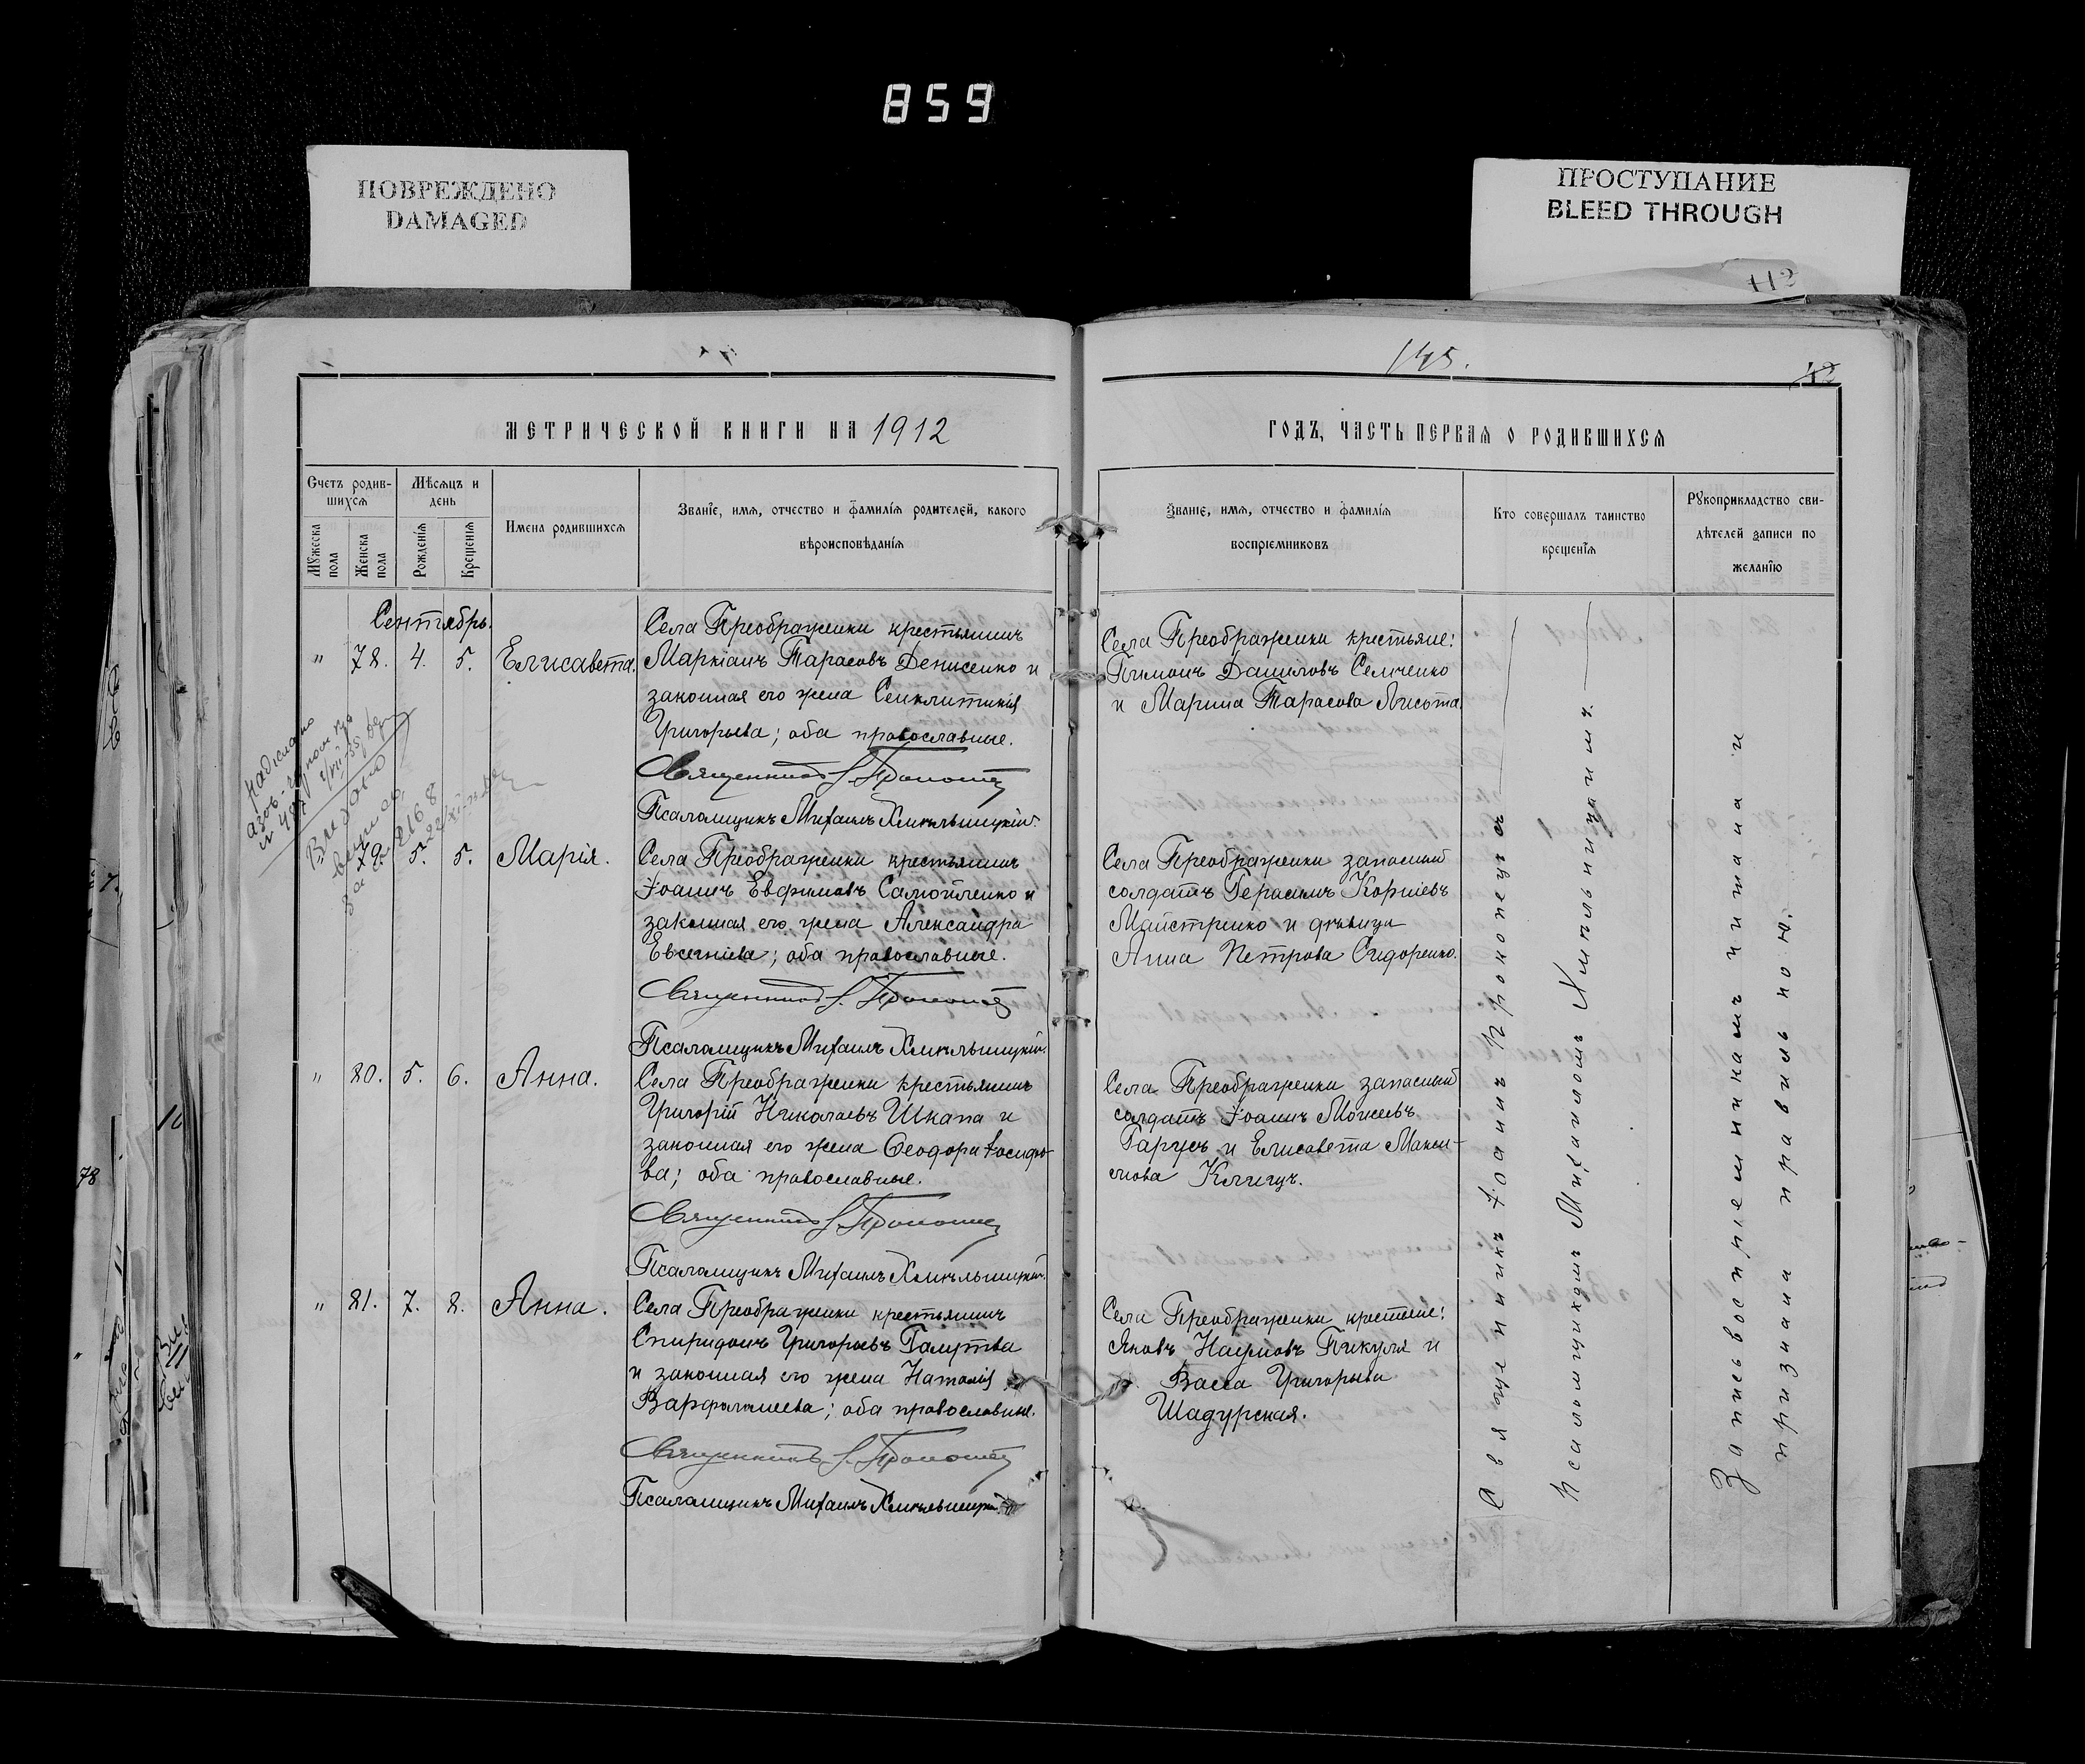 859
ПОВРЕЖДЕНО
DAMAGED
ПРОСТУПАНИЕ
BLEED THROUGH
112
145.
42
МЕТРИЧЕСКОЙ КНИГИ НА 1912
ГОДЪ, ЧАСТЬ ПЕРВАЯ О РОДИВШИХСЯ
Счетъ родив-
шихся
Мѣсяцъ и
день
Мужеска пола
Женска пола
Рожденія
Крещенія
Имена родившихся
Званіе, имя, отчество и фамилія родителей, какого
вѣроисповѣданія
Званіе, имя, отчество и фамилія
воспріемниковъ
Кто совершалъ таинство
крещенія
Рукоприкладство сви-
дѣтелей записи по
желанію
Сентябрь.
" 78. 4. 5. Елисавета.
Села Преображенки крестьянинъ
Маркіанъ Тарасовъ Денисенко и
законная его жена Сенклитикія
Григорьева; оба православные.
Священникъ І.
Псаломщикъ Михаилъ Хмѣльницкій.
Села Преображенки крестьяне:
Пимонъ Даниловъ Семченко
и Марина Тарасова Лисота.
Выдано
за № 2168
79. 5. 5. Марія.
Села Преображенки крестьянинъ
Іоаннъ Евфимовъ Самойленко и
законная его жена Александра
Евгеніева; оба православные.
Священникъ І.
Псаломщикъ Михаилъ Хмѣльницкій.
Села Преображенки запасный
солдатъ Герасимъ Корніевъ
Майстренко и дѣвица
Анна Петрова Сидоренко.
" 80. 5. 6. Анна.
Села Преображенки крестьянинъ
Григорій Николаевъ Шкапа и
законная его жена Ѳеодора Іосифо-
ва; оба православные.
Священникъ І.
Псаломщикъ Михаилъ Хмѣльницкій.
Села Преображенки запасный
солдатъ Іоаннъ Моисеевъ
Гарусъ и Елисавета Макси-
мова Клигуч.
" 81. 7. 8. Анна.
Села Преображенки крестьянинъ
Спиридонъ Григорьевъ Галушва
и законная его жена Наталія
Варфоломеева; оба православные.
Священникъ І.
Псаломщикъ Михаилъ Хмѣльницкій
Села Преображенки крестьяне:
Яковъ Наумовъ Пикуля и
Васса Григорьева
Шадурская.
Священникъ Іоаннъ Прокопецъ съ
Псаломщикомъ Михаиломъ Хмѣльницкимъ.
Запись воспріемникамъ читана и
признана правильною.